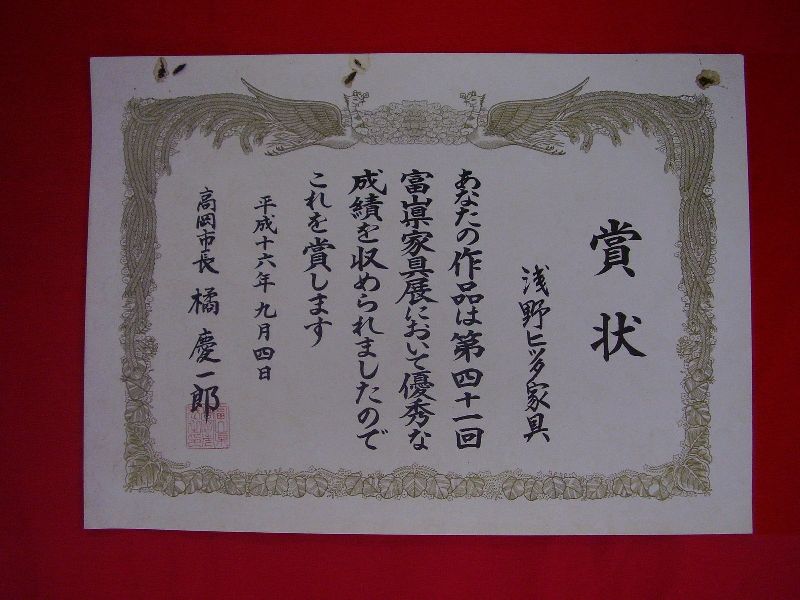 賞状
浅野ヒツタ家具
あなたの作品は第四十一回
富山県家具展において優秀な
成績を収められましたので
これを賞します
平成十六年九月四日
高岡市長 橘 慶一郎